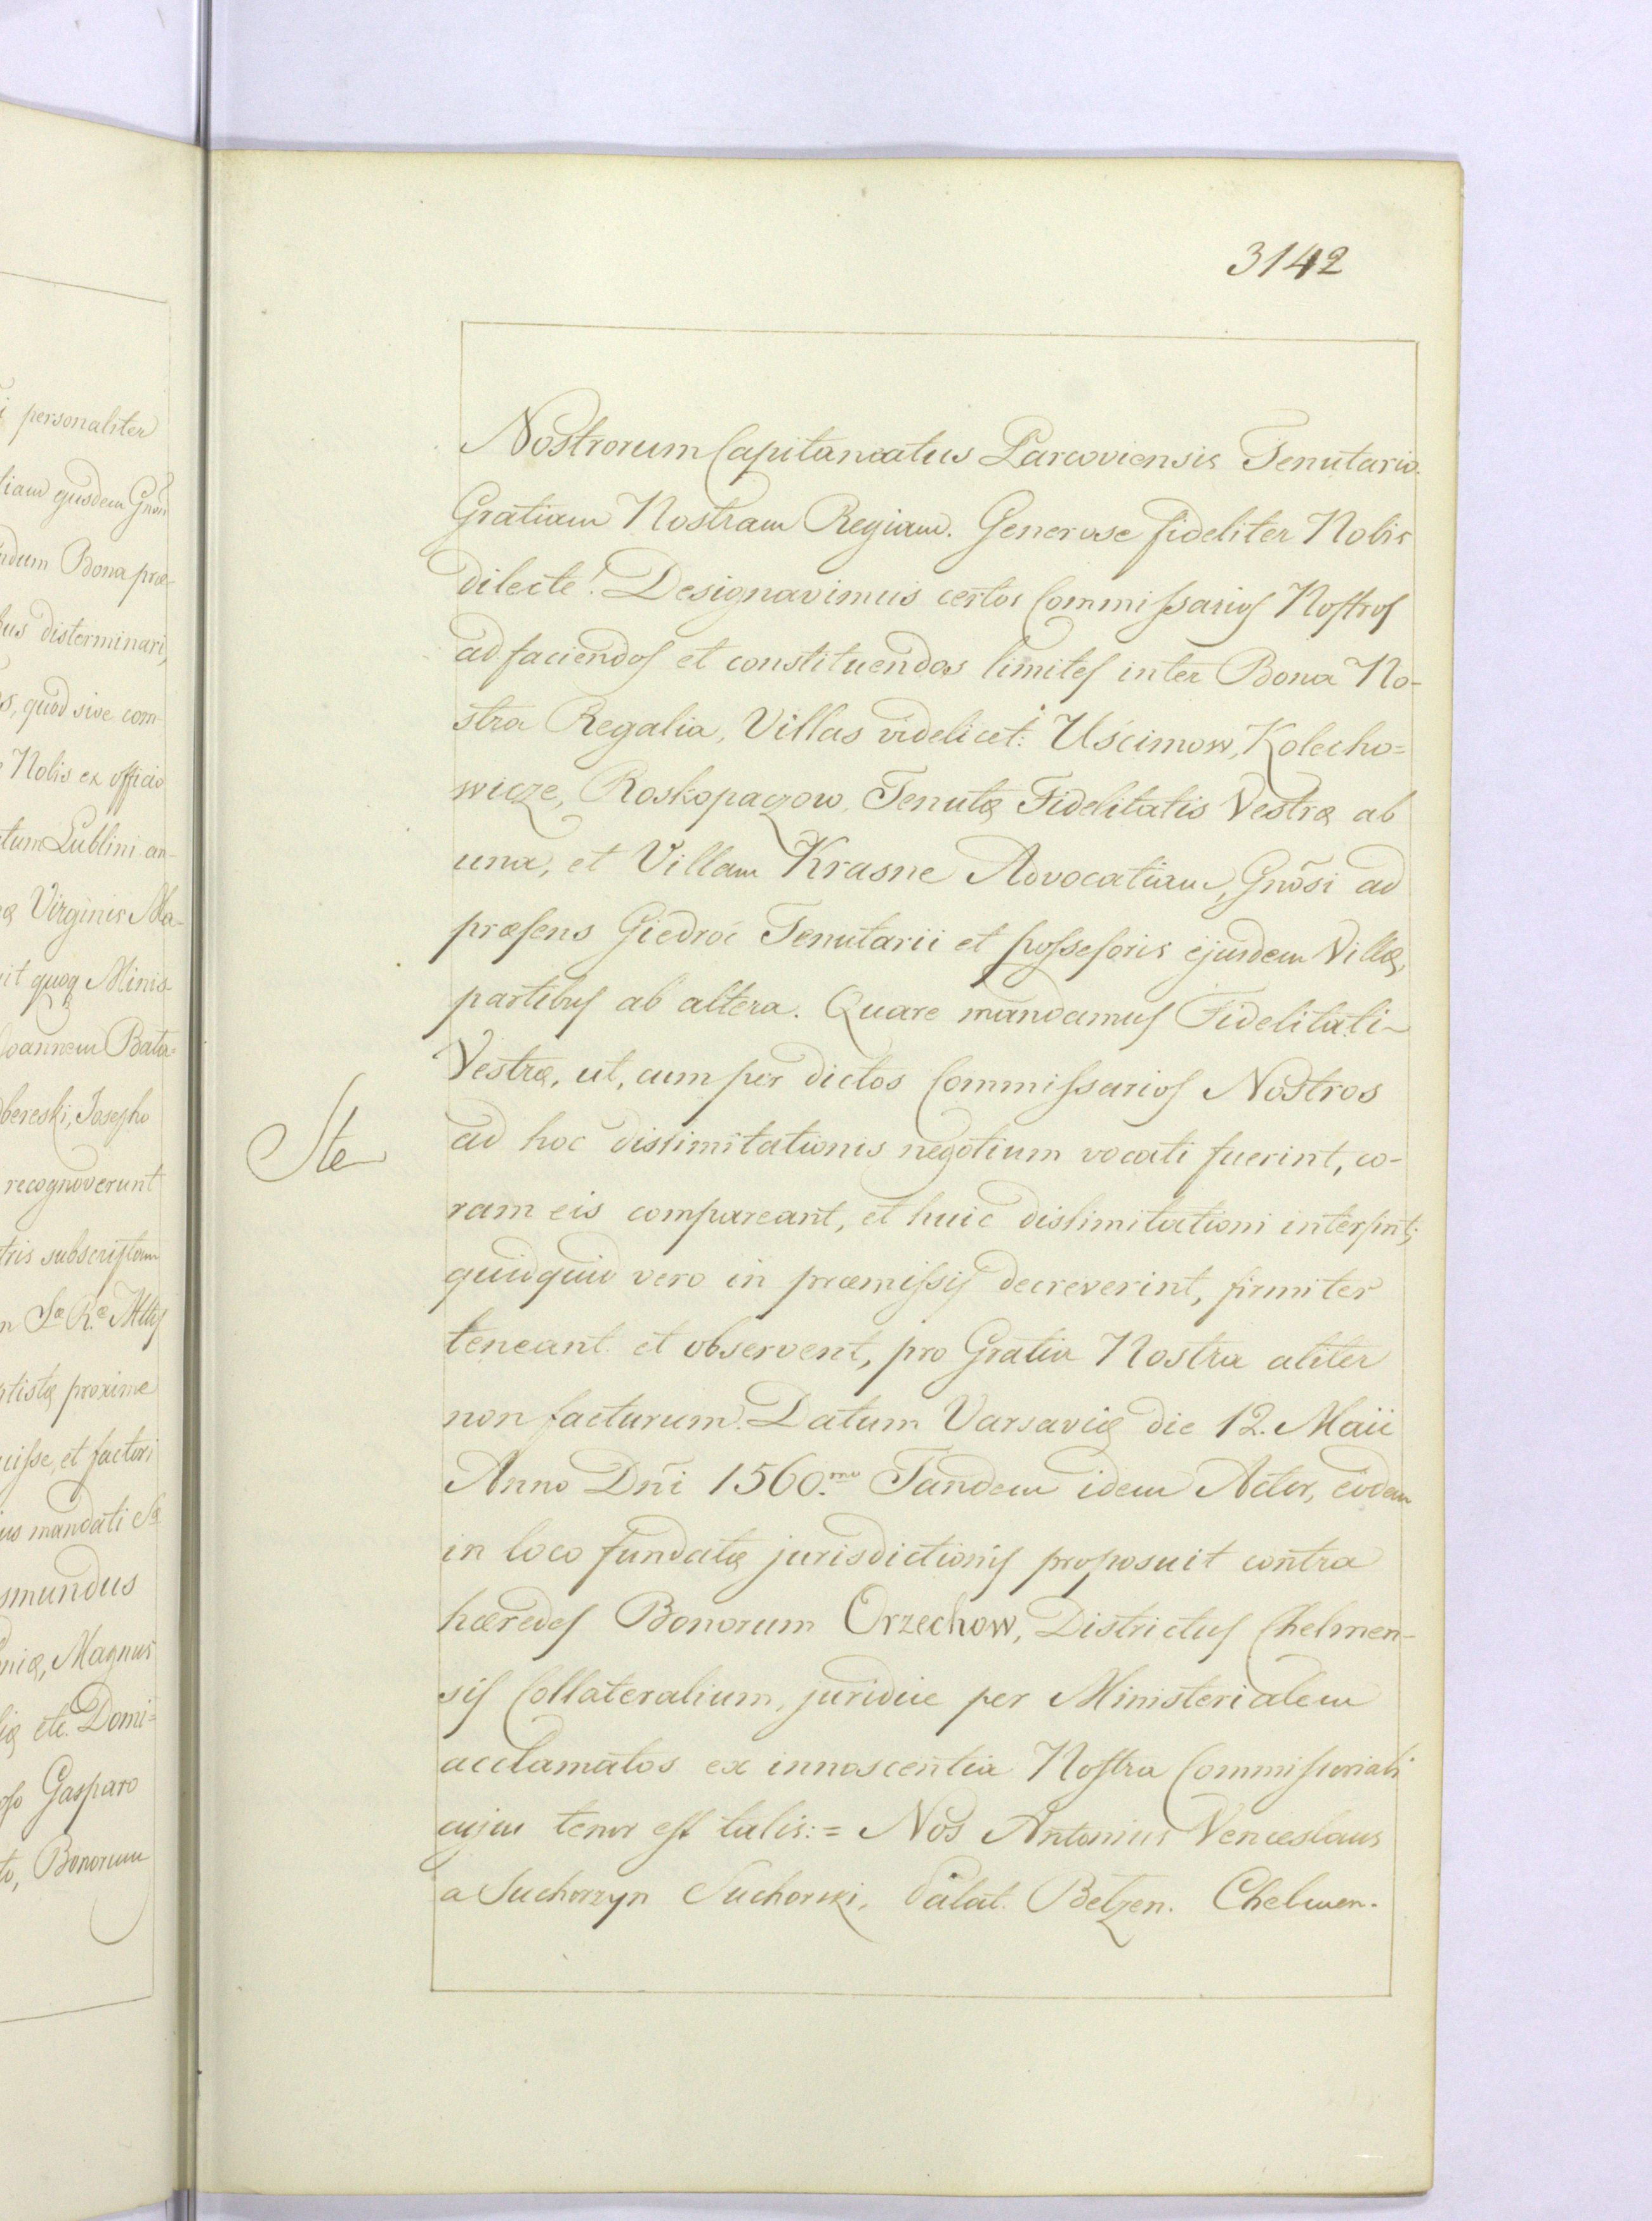 3142
Nostrorum Capitaneatus Parcoviensis Tenutario.
Gratiam Nostram Regiam. Generose fideliter Nobis
dilecte! Designavimus certos Commissarios Nostros
ad faciendos et constituendos limites inter Bona No-
stra Regalia, Villas videlicet: Uścimow, Kolecho=
wicze, Roskopaczow, Tenutæ Fidelitatis Vestræ ab
una, et Villam Krasne Advocatiam, Gnõsi ad
præsens Giedroć Tenutarii et possessoris ejusdem Villæ,
partibus ab altera. Quare mandamus Fidelitati
Vestræ, ut, cum per dictos Commissarios Nostros
ad hoc dislimitationis negotium vocati fuerint, co-
ram eis compareant, et huic dislimitationi intersint;
quidquid vero in præmissis decreverint, firmiter
teneant et observent, pro Gratia Nostra aliter
non facturum. Datum Varsaviæ die 12. Maii
Anno Dñi 1560.mo Tandem idem Actor, eodem
in loco fundatæ jurisdictionis proposuit contra
hæredes Bonorum Orzechow, Districtus Chelmen-
sis Collateralium, juridice per Ministerialem
acclamatos ex innoscentia Nostra Commissoriali
cujus tenor est talis:= Nos Antonius Venceslaus
a Suchorzyn Suchorski, Palat. Betzen. Chelmen.
Ste
i personaliter
liam ejusdem Gnosi
ndum Bona præ-
bus disterminari,
s, quod sive com-
Nobis ex officio
tum Lublini an-
æ Virginis Ma-
it quoq Minis
Joannem Bata=
bereski, Josepho
recognoverunt
tris subscriptam
n Sæ Ræ Mttis
ptistæ proxime
uisse, et factori
us mandati Sæ
smundus
niæ, Magnus
iæ etc. Domi=
oso Gasparo
to, Bonorum